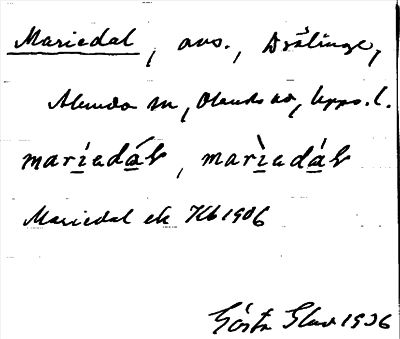 Mariedal, avs., Drälinge,
Alunda sn, Olands hd, Upps. l.
mariedál, marìedál
Mariedal ek Kb 1906
Gösta 1936